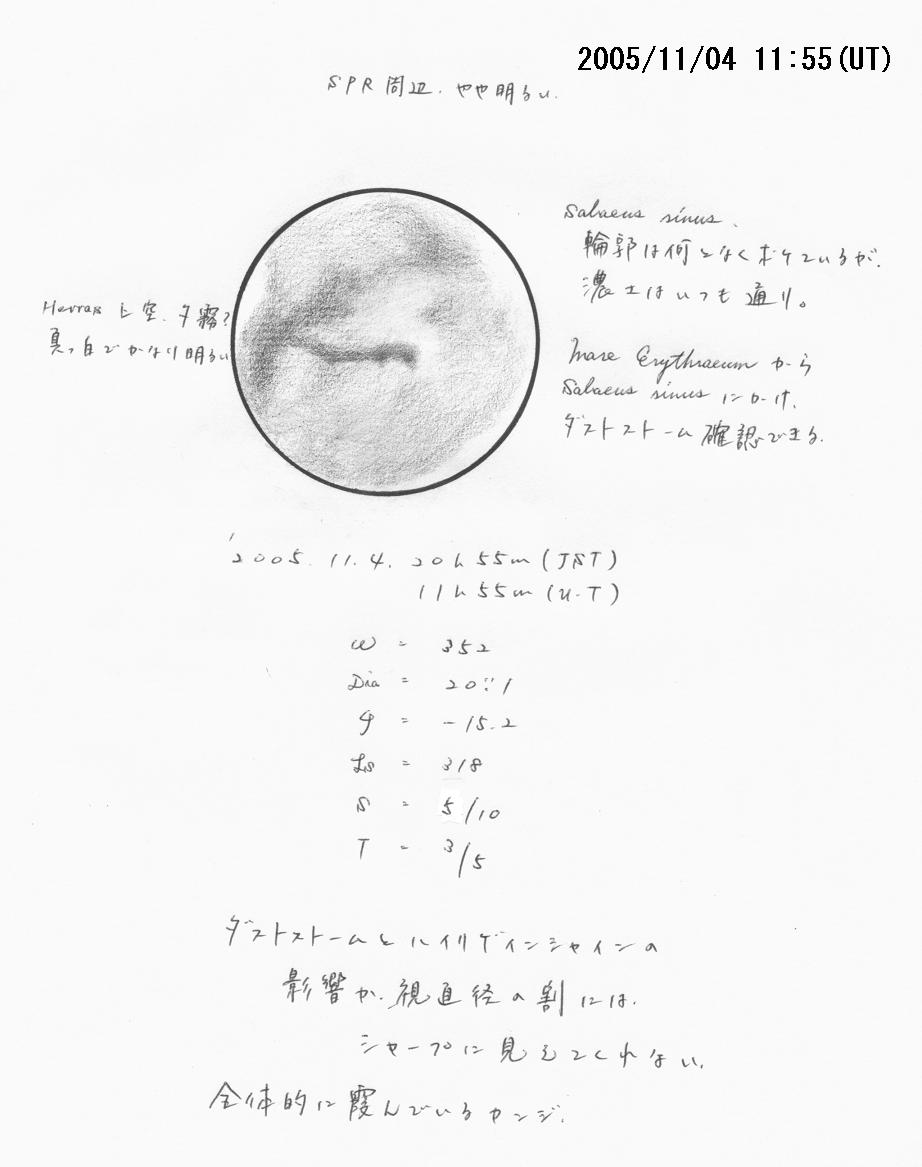 2005/11/04 11:55(UT)
SPR周辺、やや明るい.
Sabaeus sinus.
輪郭は何となくボケているが、
濃さはいつも通り。
Herras上空、夕霧?
真っ白でかなり明るい
Mare Erythraeumから
Sabaeus sinusにかけ、
ダストストーム確認できる.
'2005. 11. 4. 20h55m (JST)
11h55m (U.T)
ω = 352
Dia = 20".1
φ = -15.2
Ls = 318
S = 5/10
T = 3/5
ダストストームとハイリゲインシャインの
影響か、視直径の割には、
シャープに見えてくれない.
全体的に霞んでいるカンジ.